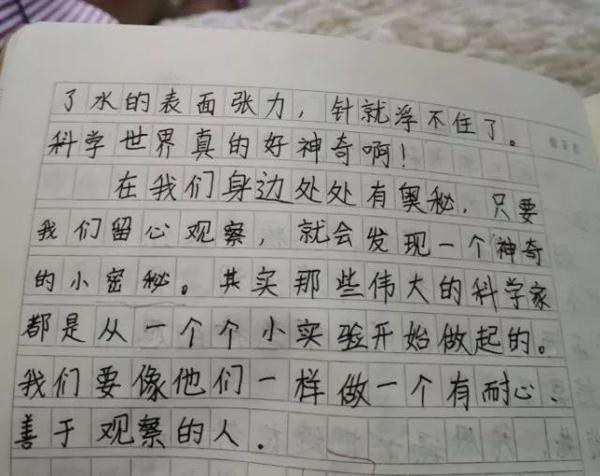 了水的表面张力，针就浮不住了。
科学世界真的好神奇啊！
在我们身边处处有奥秘，只要
我们留心观察，就会发现一个神奇
的小密秘。其实那些伟大的科学家
都是从一个个小实验开始做起的。
我们要像他们一样做一个有耐心、
善于观察的人．